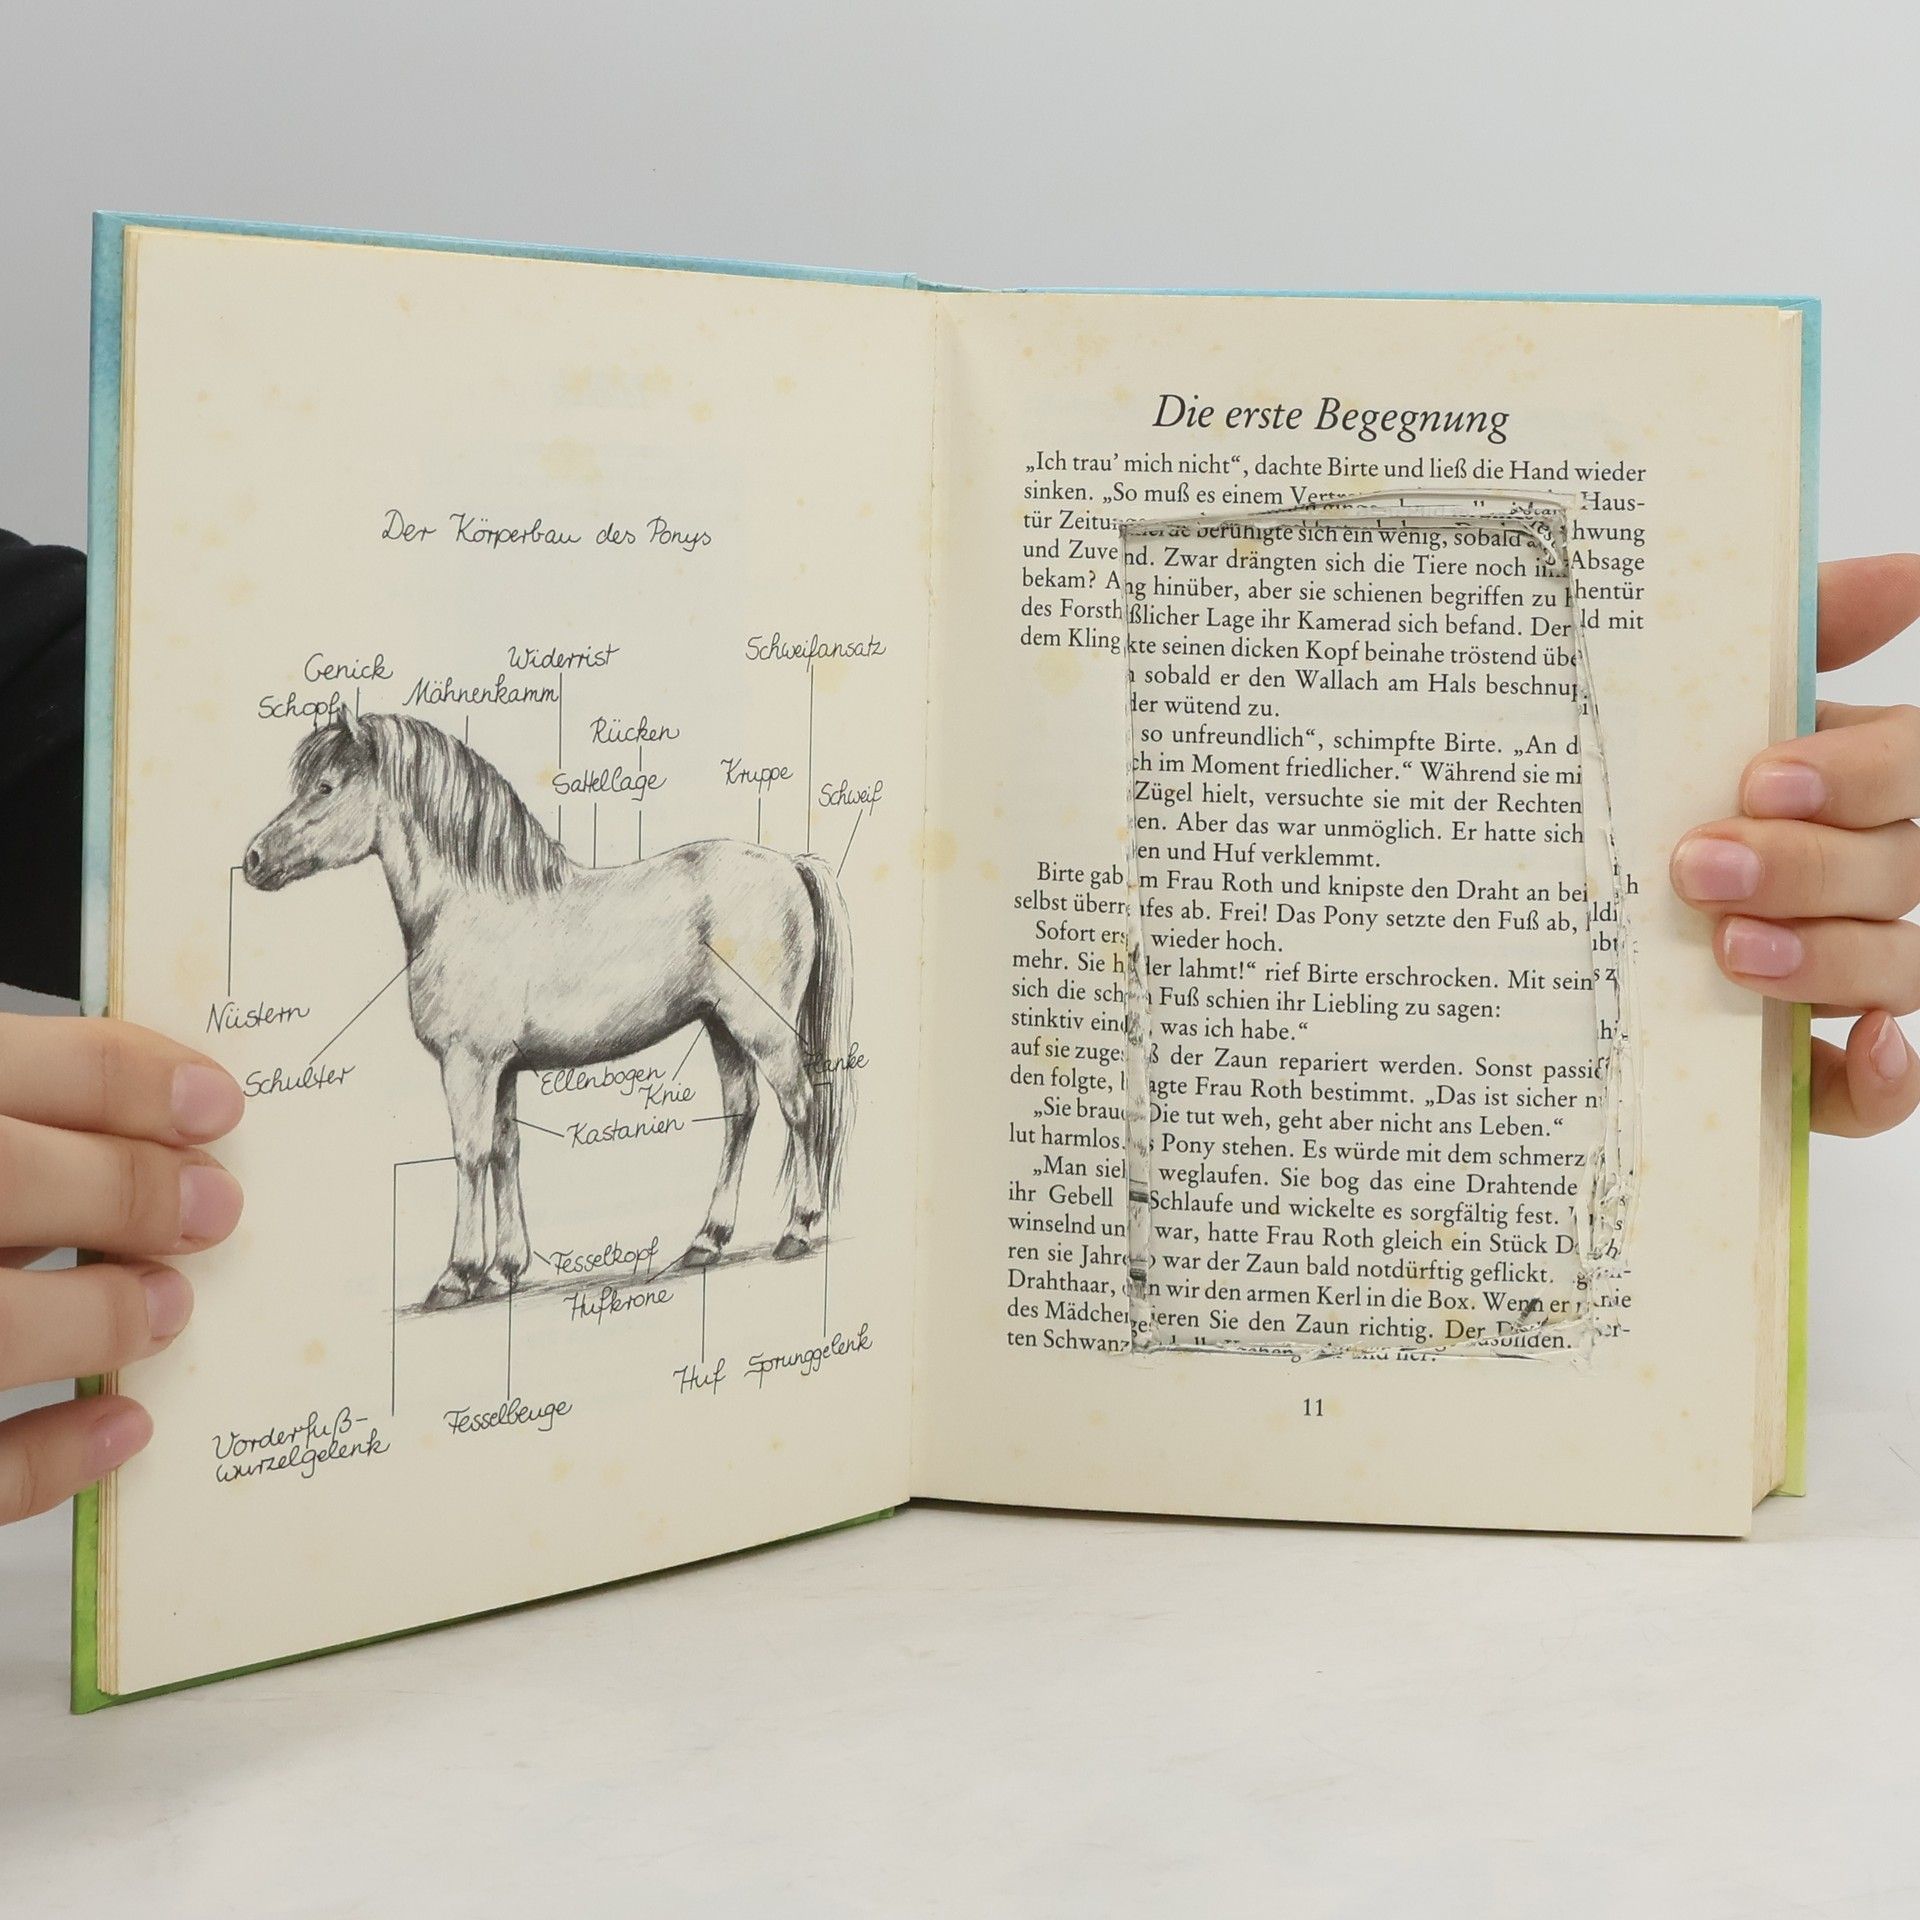 Der Körperbau des Ponys
Genick
Widerrist
Schweifansatz
Schopf
Mähnenkamm
Rücken
Sattellage
Kruppe
Schweif
Nüstern
Schulter
Ellenbogen
Hanke
Knie
Kastanien
Fesselkopf
Hufkrone
Huf
Sprunggelenk
Fesselbeuge
Vorderfuß-
wurzelgelenk
Die erste Begegnung
„Ich trau’ mich nicht“, dachte Birte und ließ die Hand wieder
sinken. „So muß es einem Haus-
tür hwung
und beruhigte sich ein wenig, sobald
nd. Zwar drängten sich die Tiere noch Absage
bekam? ng hinüber, aber sie schienen begriffen zu hentür
des ßlicher Lage ihr Kamerad sich befand. Der ld mit
dem kte seinen dicken Kopf beinahe tröstend
sobald er den Wallach am Hals
der wütend zu.
so unfreundlich“, schimpfte Birte. „An
ch im Moment friedlicher.“ Während sie
Zügel hielt, versuchte sie mit der Rechten
en. Aber das war unmöglich. Er hatte sich
en und Huf verklemmt.
Birte gab m Frau Roth und knipste den Draht an
selbst ab. Frei! Das Pony setzte den Fuß ab,
Sofort wieder hoch.
mehr. Sie der lahmt!“ rief Birte erschrocken. Mit
sich die Fuß schien ihr Liebling zu sagen:
stinktiv was ich habe.“
auf sie der Zaun repariert werden. Sonst
den folgte, agte Frau Roth bestimmt. „Das ist sicher
„Sie Die tut weh, geht aber nicht ans Leben.“
lut harmlos. Pony stehen. Es würde mit dem
„Man weglaufen. Sie bog das eine
ihr Gebell Schlaufe und wickelte es sorgfältig fest.
winselnd war, hatte Frau Roth gleich ein Stück
ren sie war der Zaun bald notdürftig geflickt.
Drahthaar, wir den armen Kerl in die Box. Wenn er
des ieren Sie den Zaun richtig. Der
ten
11